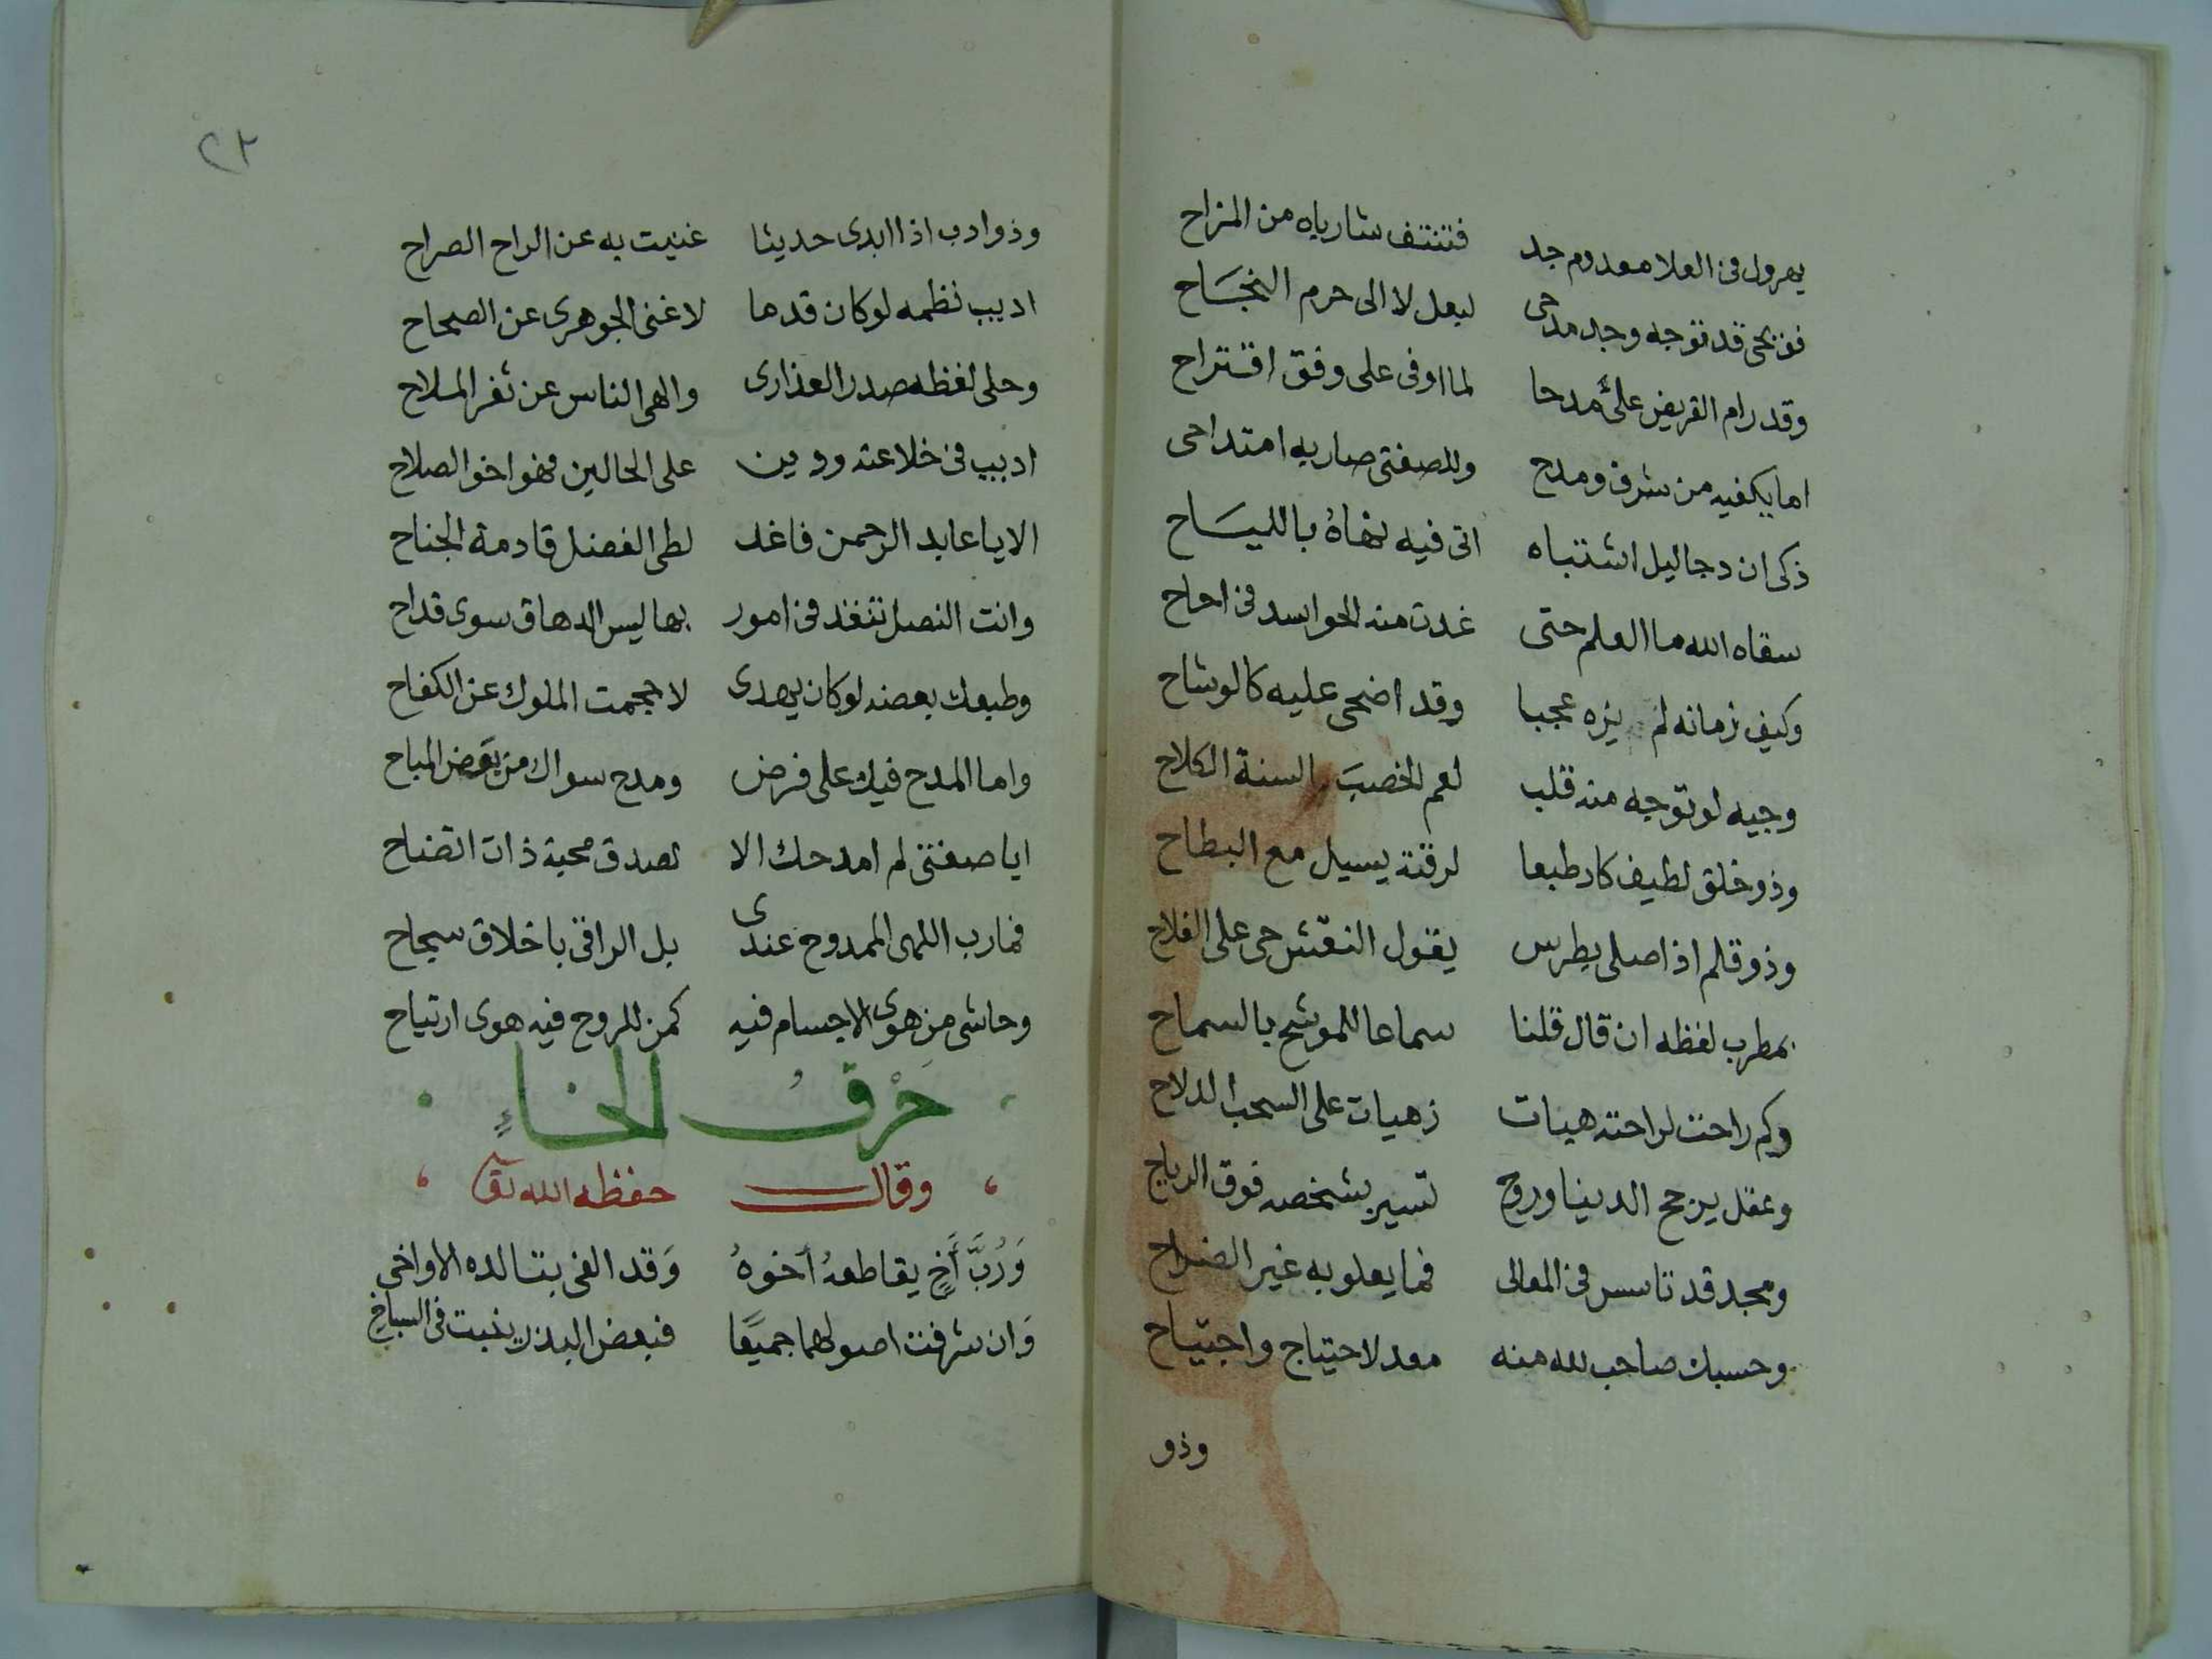 يهرول فى العلا معدوم جد فتنتف شارباه من المزاح
قد توجه وجه مدحى ليعل لا الى حرم النجاح
وقد رام القريض على مدحا لما اوفى على وفق اقتراح
اما يكفيه من شرف ومدح وللصفتى صار به امتداحى
ذكى ان دجا ليل اشتباه اتى فيه نهاه باللياح
سقاه الله ما العلم حتى غدت منه الحواسد فى احاح
وكيف زمانه لم يزه عجبا وقد اضحى عليه كالوشاح
وجيه لو توجه منه قلب لعم الخصب بالسنة الكلاح
وذو خلق لطيف كاد طبعا لرقته يسيل مع البطاح
وذو قلم اذا صلى بطرس يقول النقش حى على الفلاح
بمطرب لفظه ان قال قلنا سماعا للموشح بالسماح
وكم راحت لراحته هبات زهيات على السحب الدلاح
وعقل يرجح الدنيا وروح تسير بشخصه فوق الرياح
ومجد قد تاسس فى المعالى فما يعلو به غير الضراح
وحسبك صاحب لله منه معد لاحتياج واجتياح
وذو
٢٢
وذو ادب اذا ابدى حديثا غنيت به عن الراح الصراح
اديب نظمه لو كان قدما لاغنى الجوهرى عن الصحاح
وحلى لفظه صدر العذارى والهى الناس عن ثغر الملاح
اديب فى خلاعته ودين على الحالين فهو اخو الصلاح
الا يا عابد الرحمن فاغد لطى الفضل قادمة الجناح
وانت النصل تنفذ فى امور بها ليس الدهاق سوى قداح
وطبعك بعضه لو كان يهدى لاحجمت الملوك عن الكفاح
واما المدح فيك على فرض ومدح سواك من بعض المباح
ايا صفتى لم امدحك الا لصدق محبة ذات اتضاح
فما رب اللهى الممدوح عندى بل الراقى باخلاق سجاح
وحاشى من هوى الاجسام فيه كمن للروح فيه هوى ارتياح
حَرْفُ الخاءِ
وقال حفظه الله تعا
وَرُبَّ أَخٍ يقاطعهُ أخوهُ وَقد الفى بتالده الاواخى
وَان شرفت اصولهما جميعًا فبعض البذر ينبت فى السباخِ